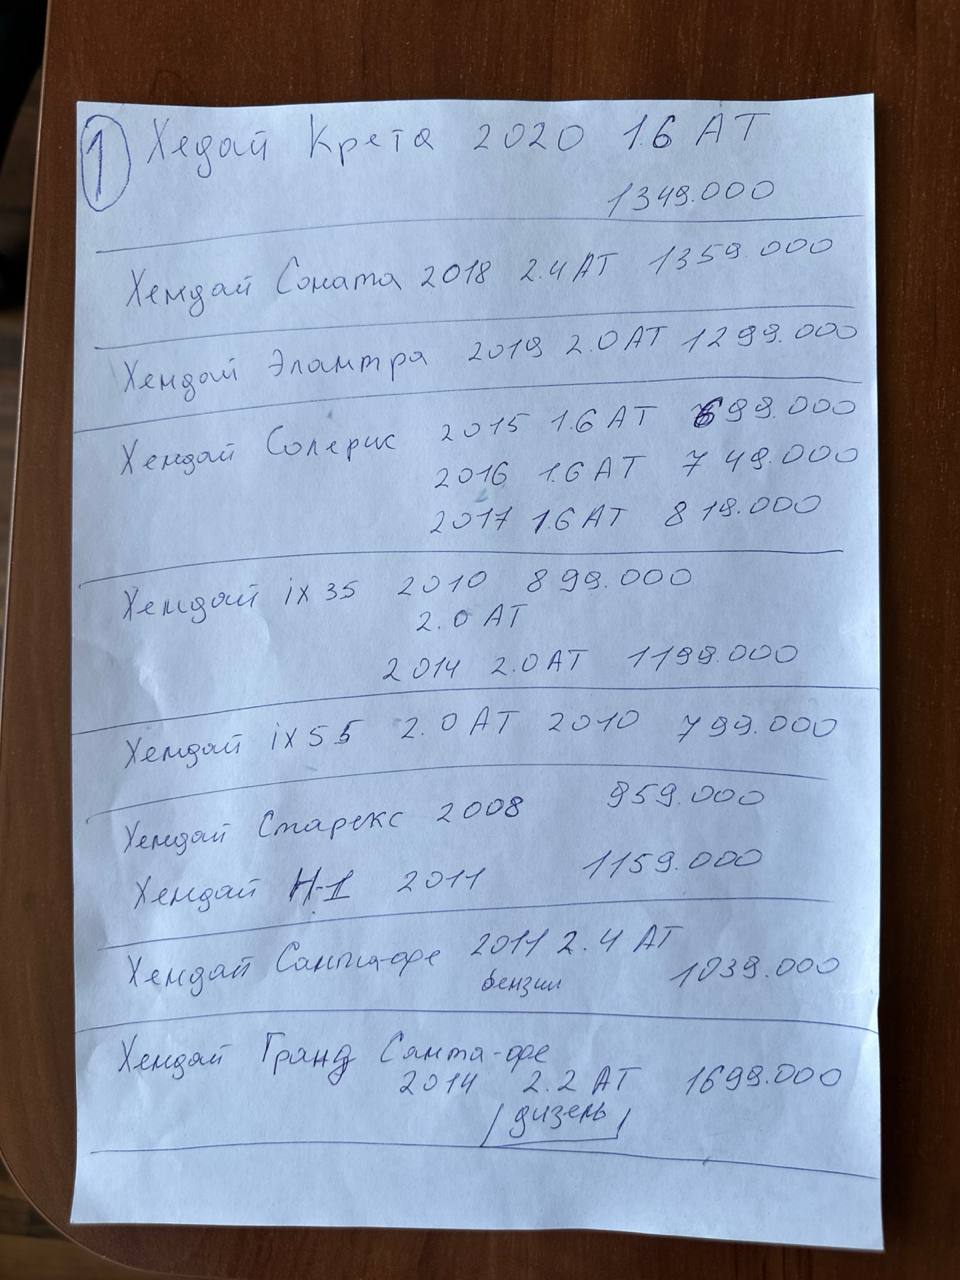 1 Хедай Крета 2020 1.6 АТ
1349.000
Хендай Соната 2018 2.4 АТ 1359.000
Хендай Элантра 2019 2.0 АТ 1299.000
Хендай Солерис 2015 1.6 АТ 699.000
2016 1.6 АТ 749.000
2017 1.6 АТ 819.000
Хендай ix35 2010 899.000
2.0 АТ
2014 2.0 АТ 1199.000
Хендай ix55 2.0 АТ 2010 799.000
Хендай Старекс 2008 959.000
Хендай H-1 2011 1159.000
Хендай Санта-фе 2011 2.4 АТ
бензин 1039.000
Хендай Гранд Санта-фе
2014 2.2 АТ 1699.000
дизель